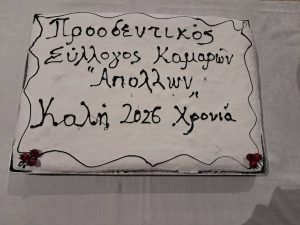 Προοδεντικός
Σύλλογος Καμαρών
"Απολλων"
Καλή 2026 Χρονιά